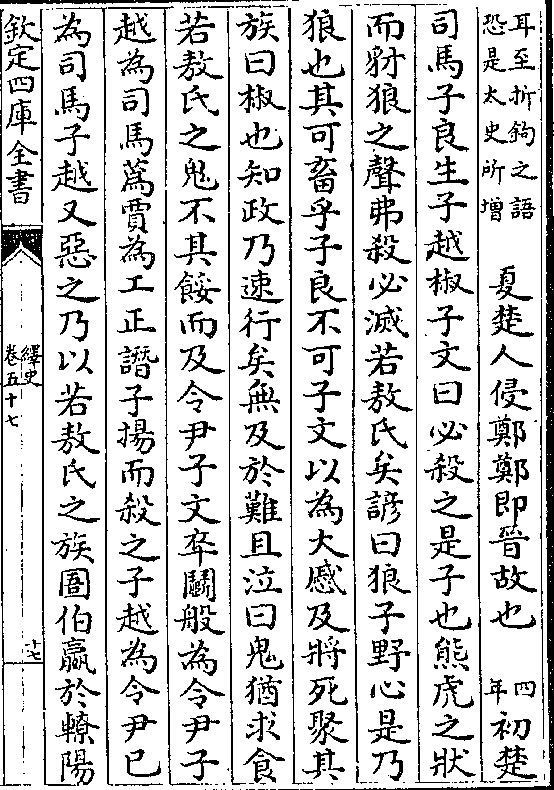 耳至折鉤之語
恐是太史所增
夏楚人侵鄭鄭即晉故也
四年
初楚
司馬子良生子越椒子文曰必殺之是子也熊虎之狀
而豺狼之聲弗殺必滅若敖氏矣諺曰狼子野心是乃
狼也其可畜乎子良不可子文以為大慼及將死聚其
族曰椒也知政乃速行矣無及於難且泣曰鬼猶求食
若敖氏之鬼不其餒而及令尹子文卒鬭般為令尹子
越為司馬蒍賈為工正譖子揚而殺之子越為令尹已
為司馬子越又惡之乃以若敖氏之族圄伯嬴於轑陽
欽定四庫全書
繹史
卷五十七
十七